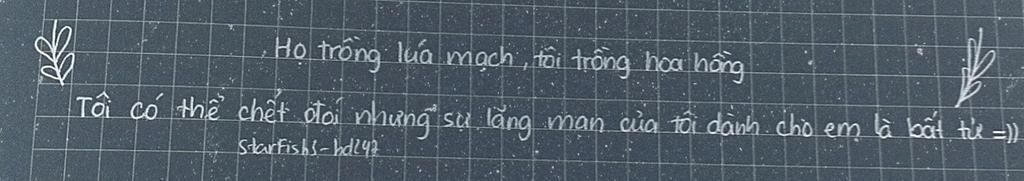 Họ trồng lúa mạch, tôi trồng hoa hồng
Tôi có thể chết đói nhưng sự lãng mạn của tôi dành cho em là bất tử =))